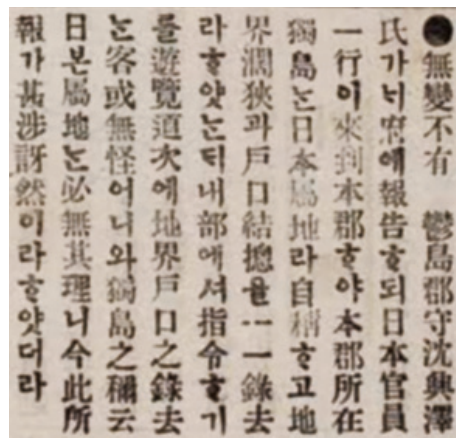 ●無變不有 鬱島郡守沈興澤
氏가ᄂᆡ府에報告ᄒᆞ되日本官員
一行이來到本郡ᄒᆞ야本郡所在
獨島ᄂᆞᆫ日本屬地라自稱ᄒᆞ고地
界濶狹과戶口結摠을一一錄去
라ᄒᆞ얏ᄂᆞᆫᄃᆡ내部에셔指令ᄒᆞ기
를遊覽道次에地界戶口之錄去
ᄂᆞᆫ容或無怪어니와獨島之稱云
日본屬地ᄂᆞᆫ必無其理니今此所
報가甚涉訝然이라ᄒᆞ얏더라